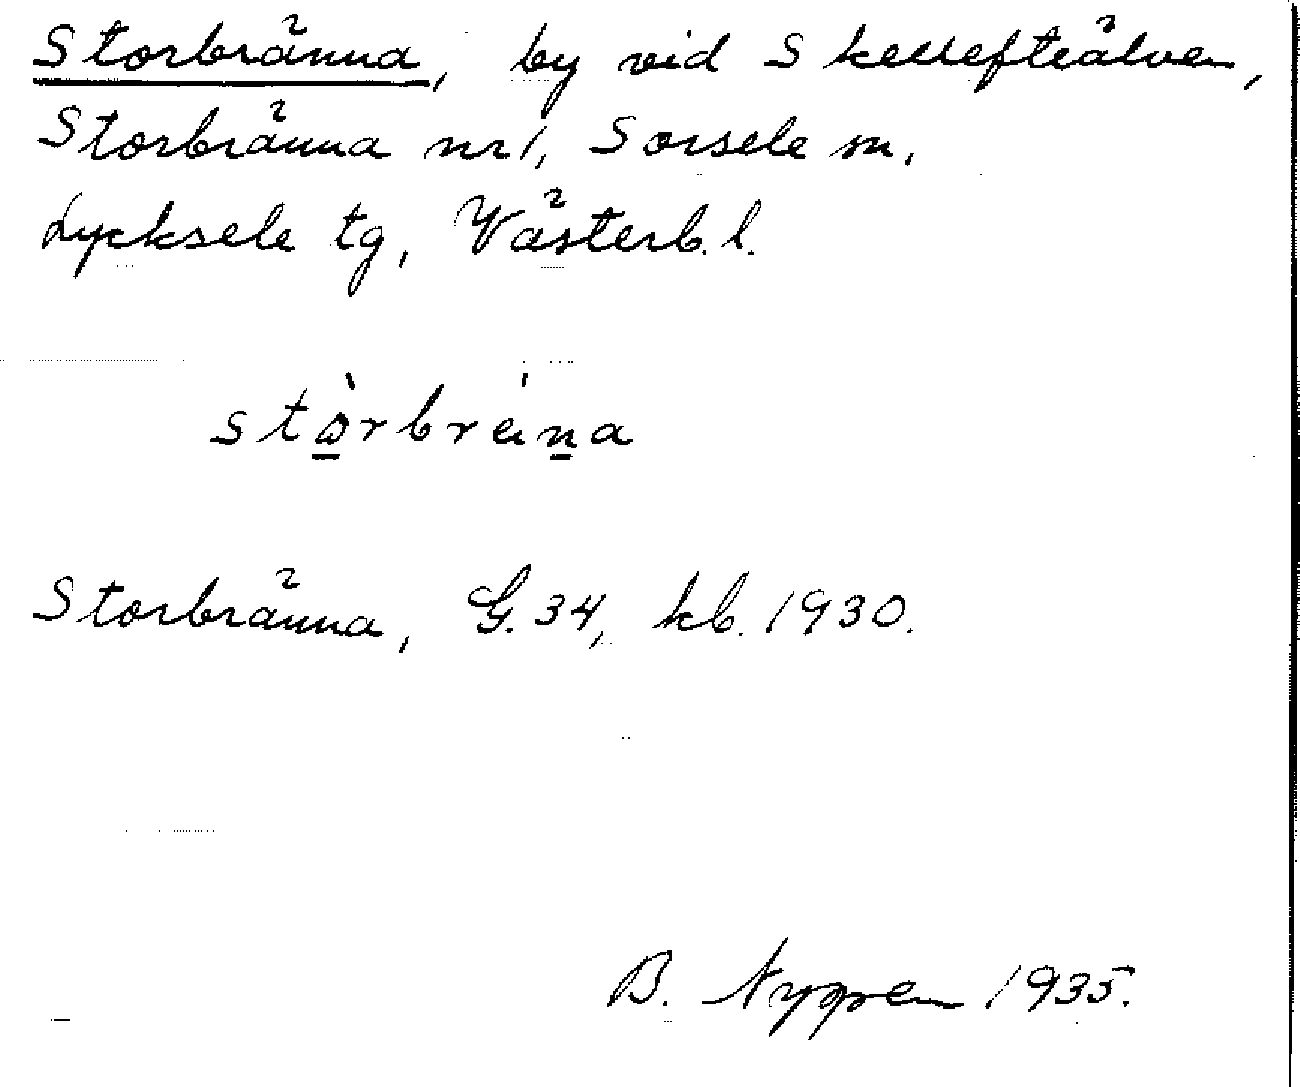 Storbränna, by vid Skellefteälven,
Storbränna nr 1, Sorsele sn,
Lycksele tg, Västerb. l.
stò̱rbräṉa
Storbränna, G. 34, kb. 1930.
B. Nygren 1935.